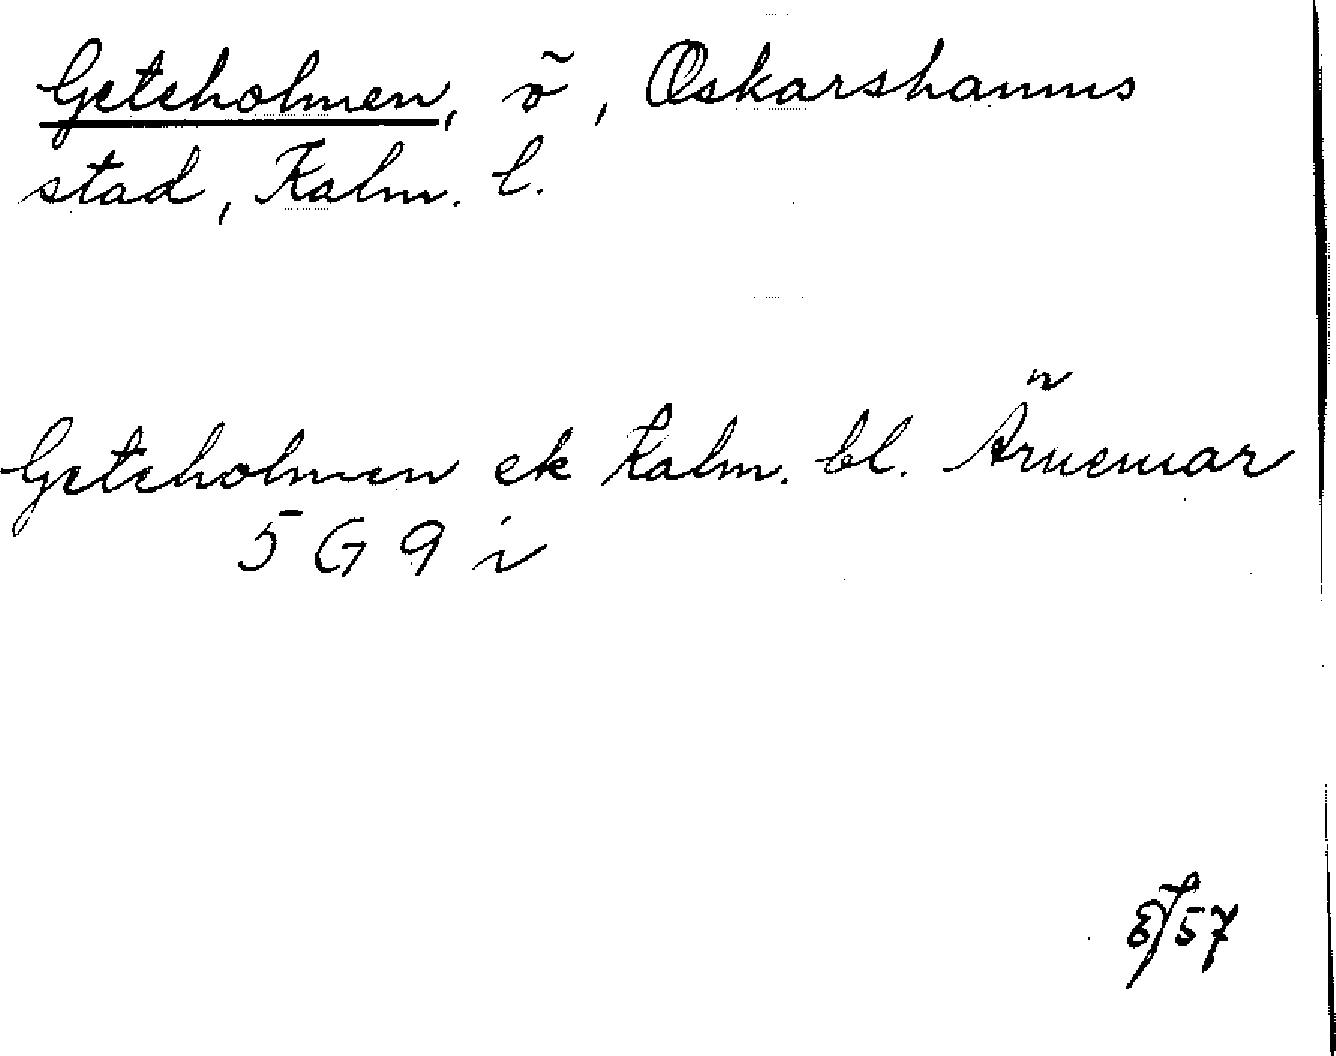 Geteholmen, ö, Oskarshamns
stad, Kalm. l.
Geteholmen ek Kalm. bl. Ärnemar
5 G 9 i
57